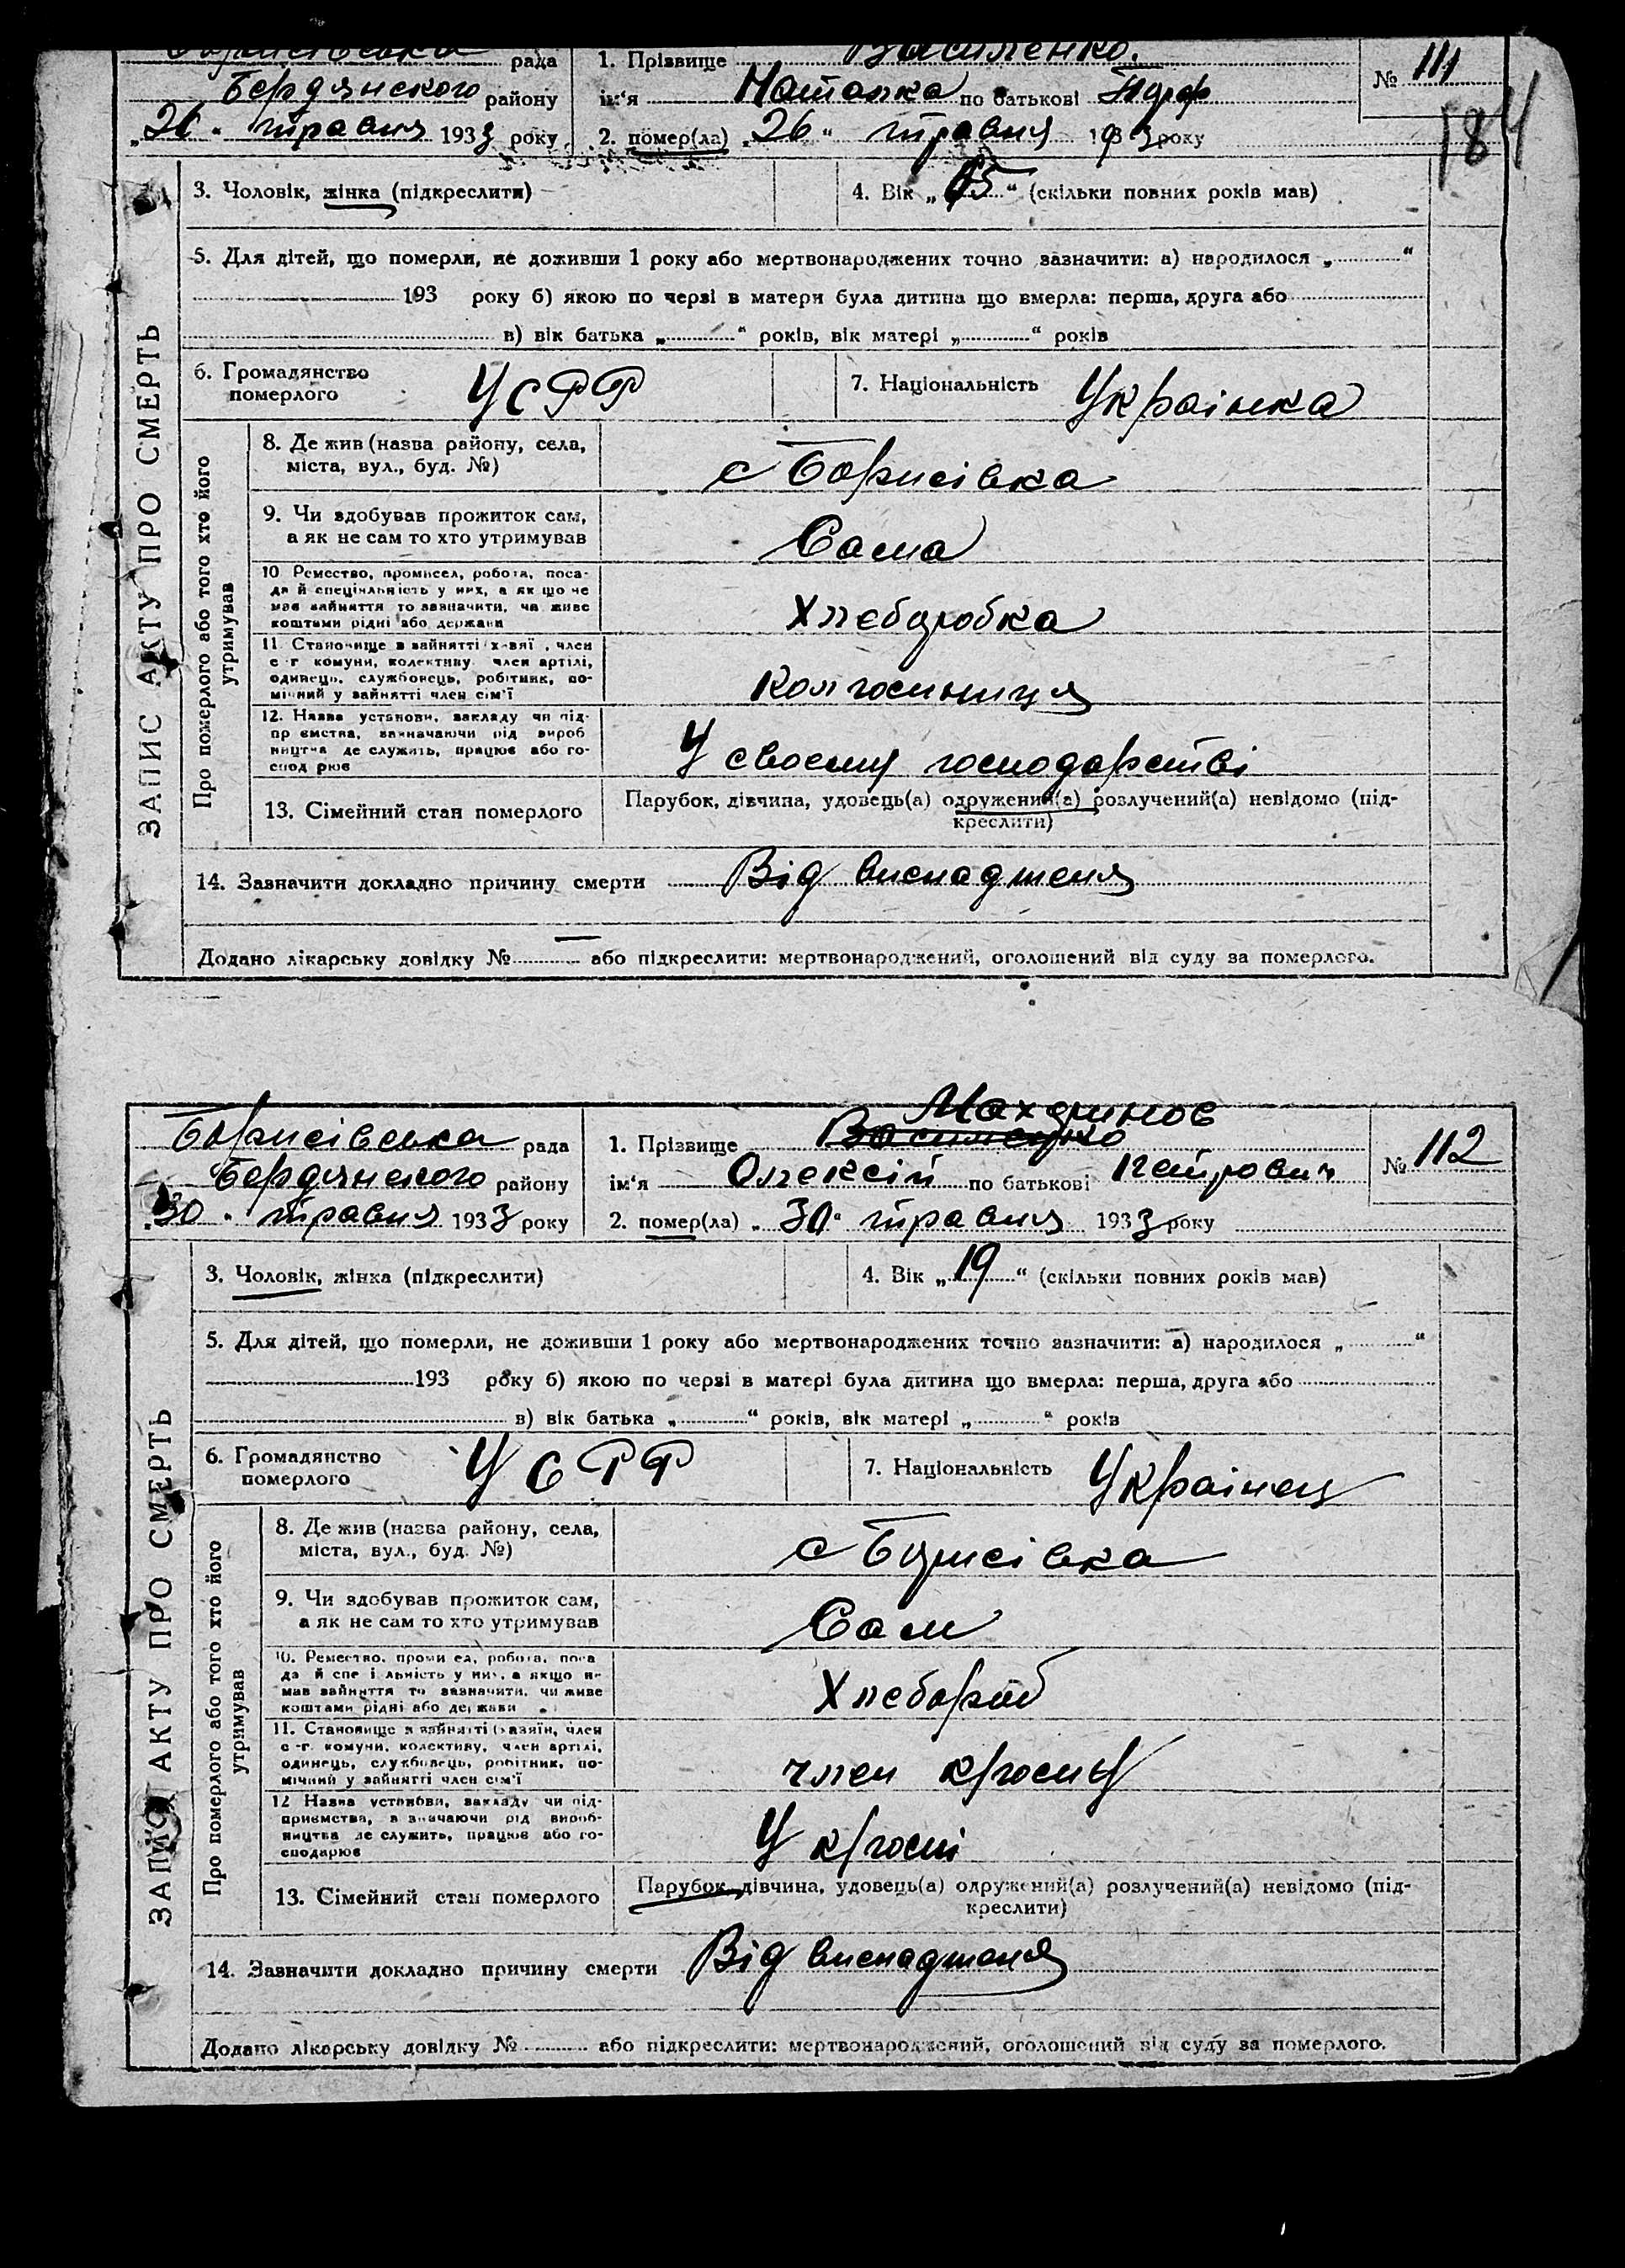 Борисівська рада
Бердянского району
„26" травня 1933 року
1. Прізвище Василенко.
ім'я по батькові
2. помер(ла) „26" травня 1933 року
№ 111
184
ЗАПИС АКТУ ПРО СМЕРТЬ
3. Чоловік, жінка (підкреслити)
4. Вік „ " (скільки повних років мав)
5. Для дітей, що померли, не доживши 1 року або мертвонароджених точно зазначити: а) народилося „ "
193 року б) якою по черзі в матери була дитина що вмерла: перша, друга або
в) вік батька „ " років, вік матері „ " років
6. Громадянство
померлого
УСРР
7. Національність Українка
Про померлого або того хто його
утримував
8. Де жив (назва району, села,
міста, вул., буд. №)
с Борисівка
9. Чи здобував прожиток сам,
а як не сам то хто утримував
Сама
10 Ремество, промисел, робота, поса-
да й спеціяльність у них, а як що не
мав зайняття то зазначити, чи живе
коштами рідні або держави
Хлеборобка
11. Становище в зайнятті х-зяї , член
с-г комуни, колективу член артілі,
одинець, службовець, робітник, по-
мічний у зайнятті член сім'ї
Колгосниця
12. Назва установи, закладу чи під-
пр ємства, зазначаючи рід вироб
ництва де служить, працює або го-
спод рює
У своєму господарстві
13. Сімейний стан померлого
Парубок, дівчина, удовець(а) одружений(а) розлучений(а) невідомо (під-
креслити)
14. Зазначити докладно причину смерти Від виснадженя
Додано лікарську довідку № — або підкреслити: мертвонароджений, оголошений від суду за померлого.
Борисівська рада
Бердянского району
„30" травня 1933 року
Махринов
1. Прізвище Василенко
ім'я Олексій по батькові Петрович
2. помер(ла) „30" травня 1933 року
№ 112
ЗАПИС АКТУ ПРО СМЕРТЬ
3. Чоловік, жінка (підкреслити)
4. Вік „19" (скільки повних років мав)
5. Для дітей, що померли, не доживши 1 року або мертвонароджених точно зазначити: а) народилося „ "
193 року б) якою по черзі в матері була дитина що вмерла: перша, друга або
в) вік батька „ " років, вік матері „ " років
6. Громадянство
померлого
УСРР
7. Національність Українец
Про померлого або того хто його
утримував
8. Де жив (назва району, села,
міста, вул., буд. №)
с Борисівка
9. Чи здобував прожиток сам,
а як не сам то хто утримував
Сам
10. Ремество, промисел, робота, поса
да й спеціяльність у них, а якщо не
мав зайняття то зазначити, чи живе
коштами рідні або держави
Хлебороб
11. Становище в зайнятті (хазяїн, член
с-г. комуни, колективу, член артілі,
одинець, службовець, робітник, по-
мічний у зайнятті член сім'ї
член к/госпу
12 Назва установи, закладу чи під-
приємства, зазначаючи рід вироб-
ництва де служить, працює або го-
сподарює
У к/госпі
13. Сімейний стан померлого
Парубок, дівчина, удовець(а) одружений(а) розлучений(а) невідомо (під-
креслити)
14. Зазначити докладно причину смерти Від виснадженя
Додано лікарську довідку № або підкреслити: мертвонароджений, оголошений від суду за померлого.